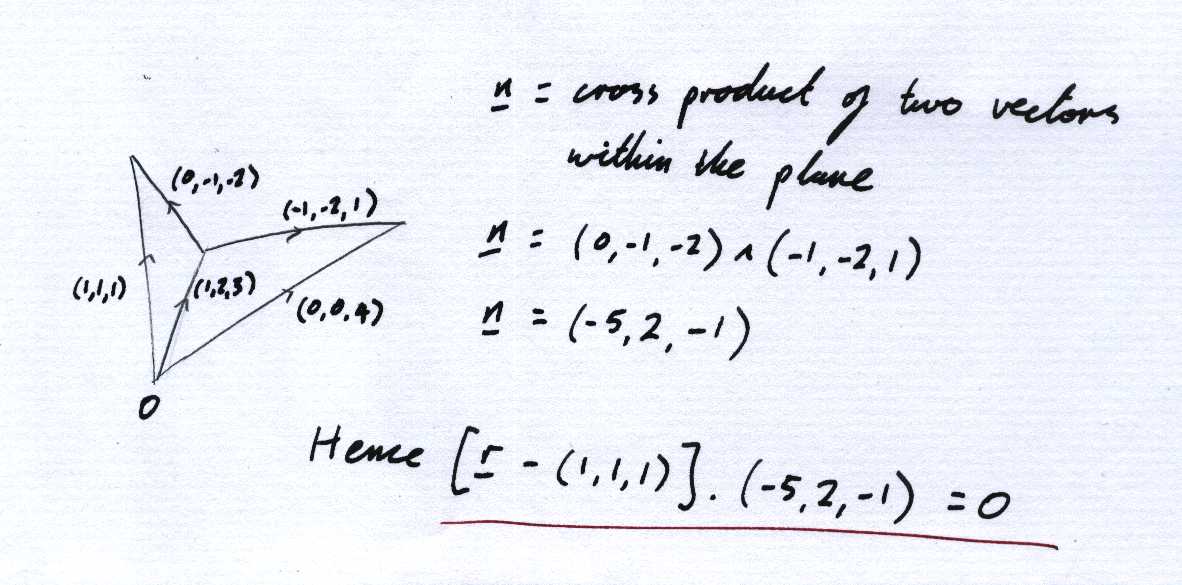 n = cross product of two vectors
within the plane
(0,-1,-2)
(-1,-2,1)
n = (0,-1,-2) ∧ (-1,-2,1)
(1,1,1)
(1,2,3)
(0,0,4)
n = (-5,2,-1)
O
Hence [r - (1,1,1)] . (-5,2,-1) = 0